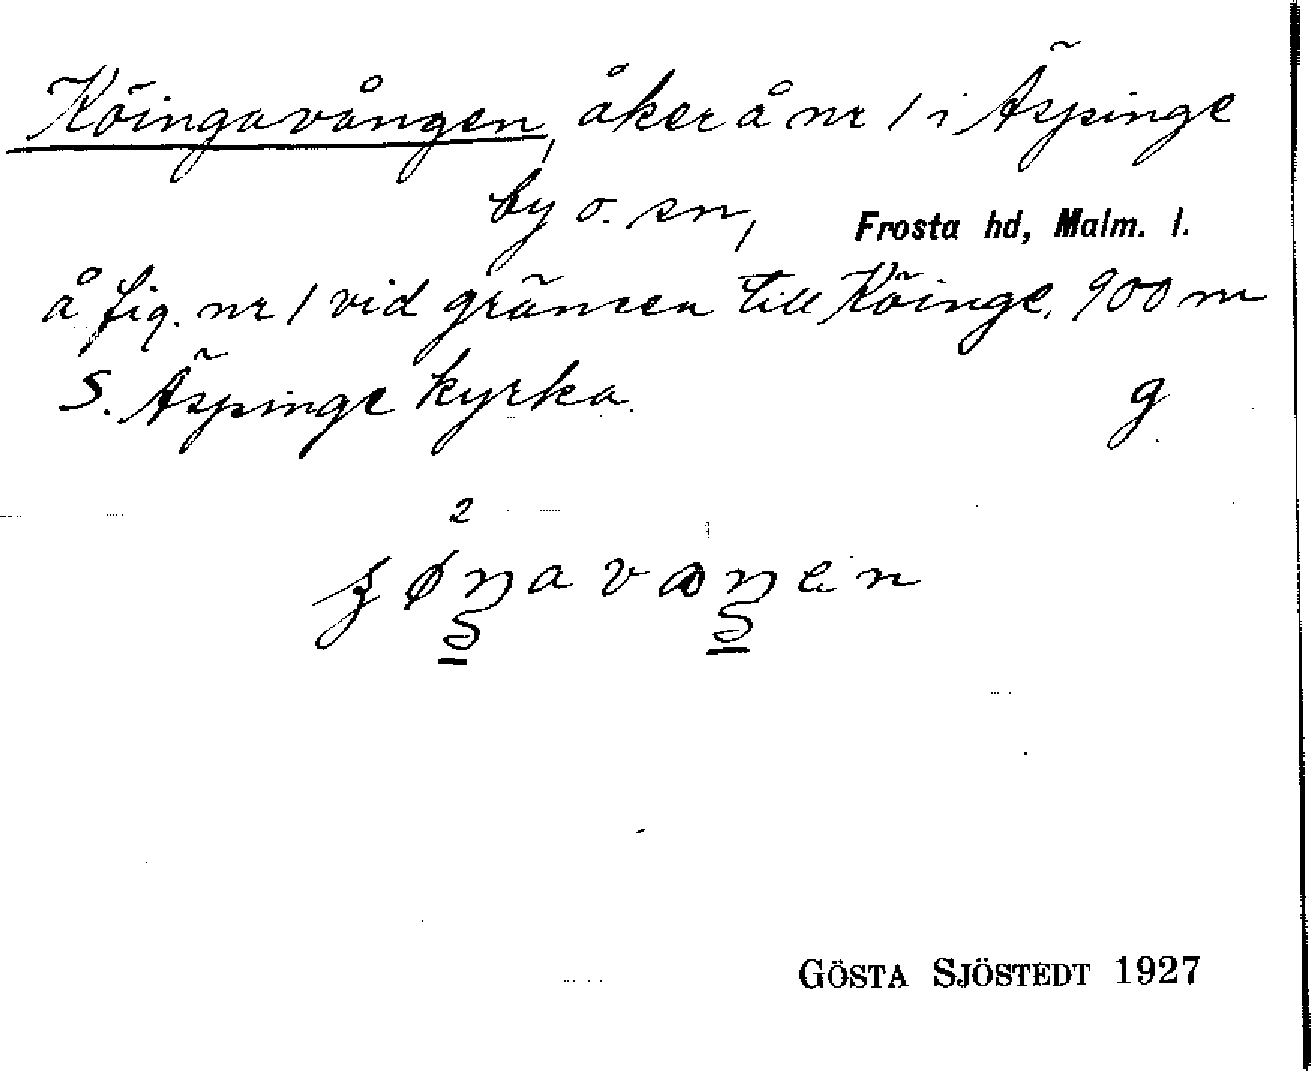 Köingavången, åker å nr 1 i Äspinge
by o. sn, Frosta hd, Malm. l.
å fig. nr 1 vid gränsen till Köinge, 900 m
S. Äspinge kyrka. g
2
GÖSTA SJÖSTEDT 1927